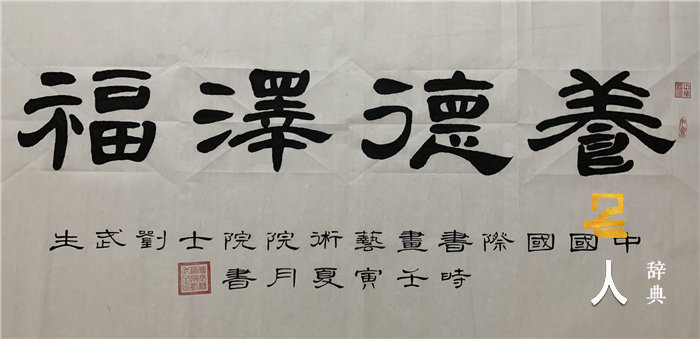 養德澤福
中國國際書畫藝術院院士劉武生
時壬寅夏月書
名人辞典